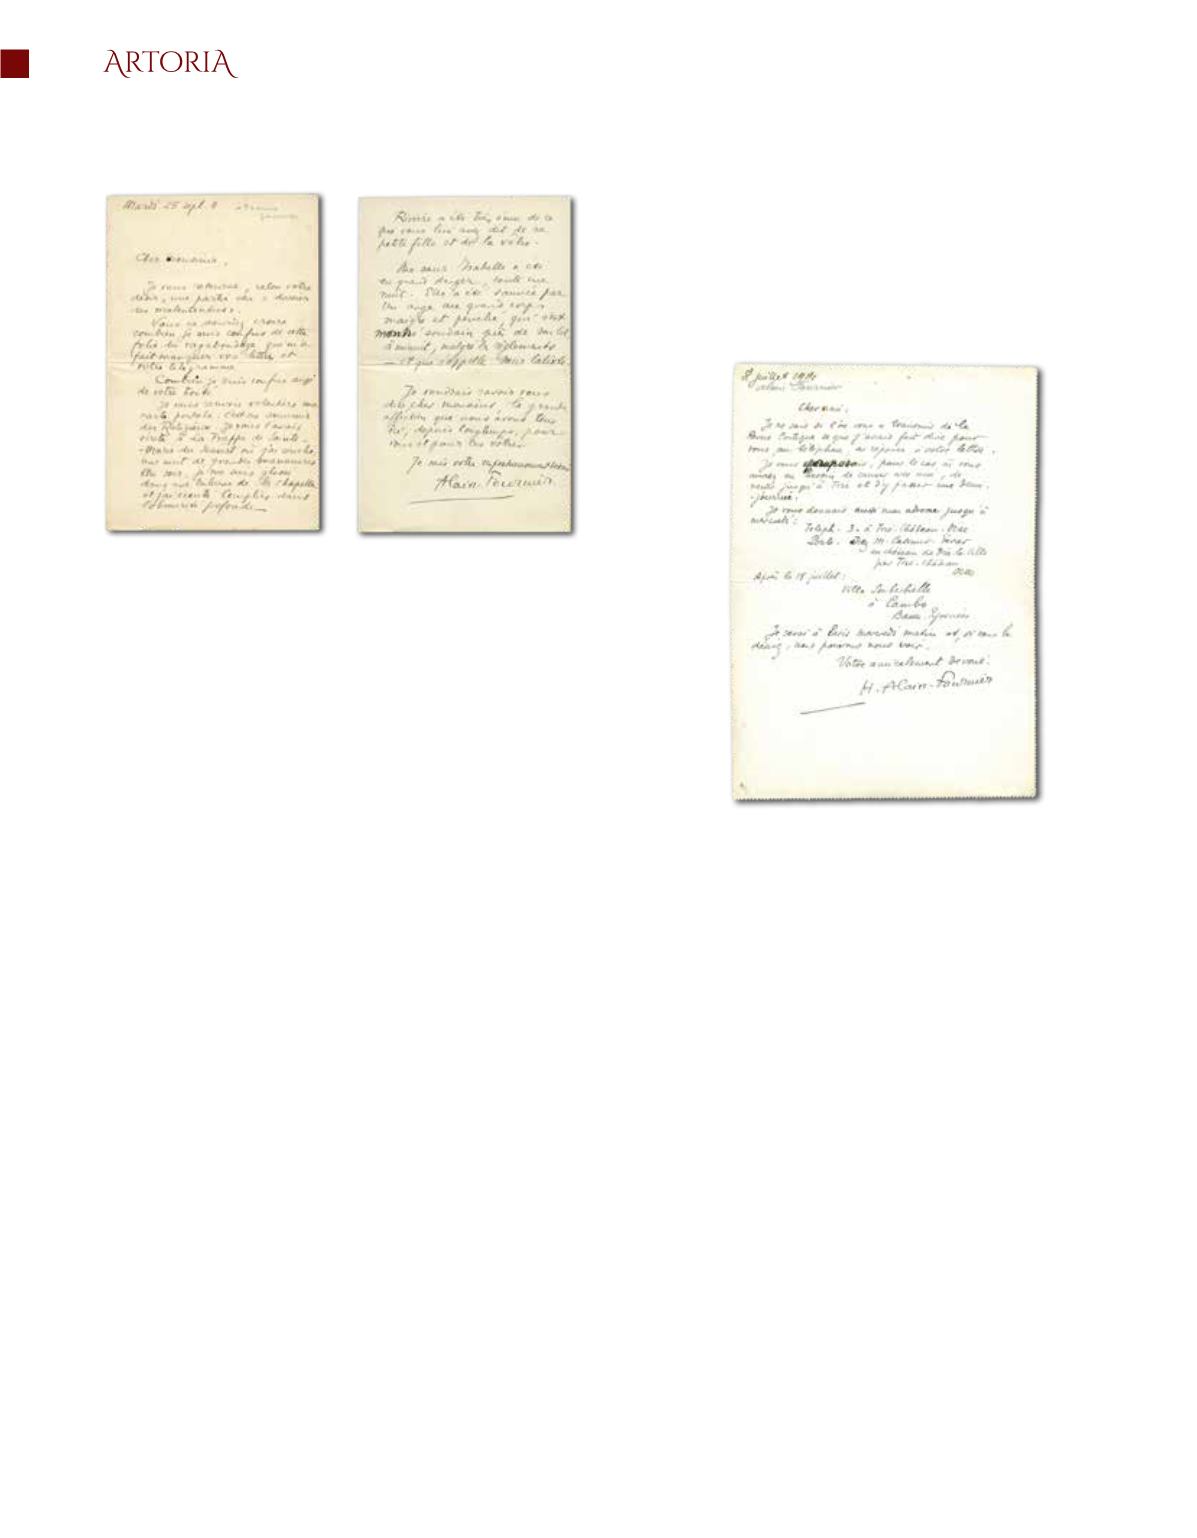 ARTORIA
Mardi 25 sept.
Cher
Je vous retourne, selon votre
désir, une partie du « dossier
des malentendus ».
Vous ne sauriez croire
combien je suis confus de cette
folie du vagabondage qui m'a
fait manquer vos lettres et
votre télégramme
Combien je suis confus aussi
de votre bonté.
carte postale : C'est un
des Religieux. Je vous l'avais
à La Trappe de Sainte-
-Marie du Désert où j'ai couché,
une nuit de grandes manœuvres
Un soir, je me suis glissé
dans une tribune de la chapelle
et j'ai écouté Complies dans
l'obscurité profonde_
Rivière a été très ému de ce
que vous lui avez dit de sa
petite fille et de la vôtre.
Ma sœur Isabelle a été
en grand danger, toute une
nuit. Elle a été sauvée par
un ange au grand corps
maigre et penché, qui s'est
montré soudain près de son lit
à minuit, malgré les règlements
— et que s'appelle
Je voudrais savoir vous
dire cher la grande
affection que nous avons tous
ici, depuis longtemps, pour
vous et pour les vôtres
Je suis votre
Alain-Fournier.
8 juillet
Alain Fournier
Cher ami,
Je ne sais si l'on vous a transmis de la
part ce que j'avais fait dire pour
vous, au téléphone, en réponse à votre lettre.
Je vous proposais, pour le cas où vous
auriez eu besoin de causer avec moi, de
venir jusqu'à Trie et d'y passer une demi-
-journée.
Je vous donnais aussi mon adresse jusqu'à
mercredi :
Téleph. 3. à Trie-Château. Oise
Chez M. Casimir-Perier
au château de Trie-la-Ville
par Trie-Château
Oise
Après le 18 juillet :
Villa
à Cambo
Basses-Pyrénées
Je serai à Paris mercredi matin et, si vous le
désirez, nous pourrons nous voir.
Votre amicalement dévoué.
H. Alain-Fournier